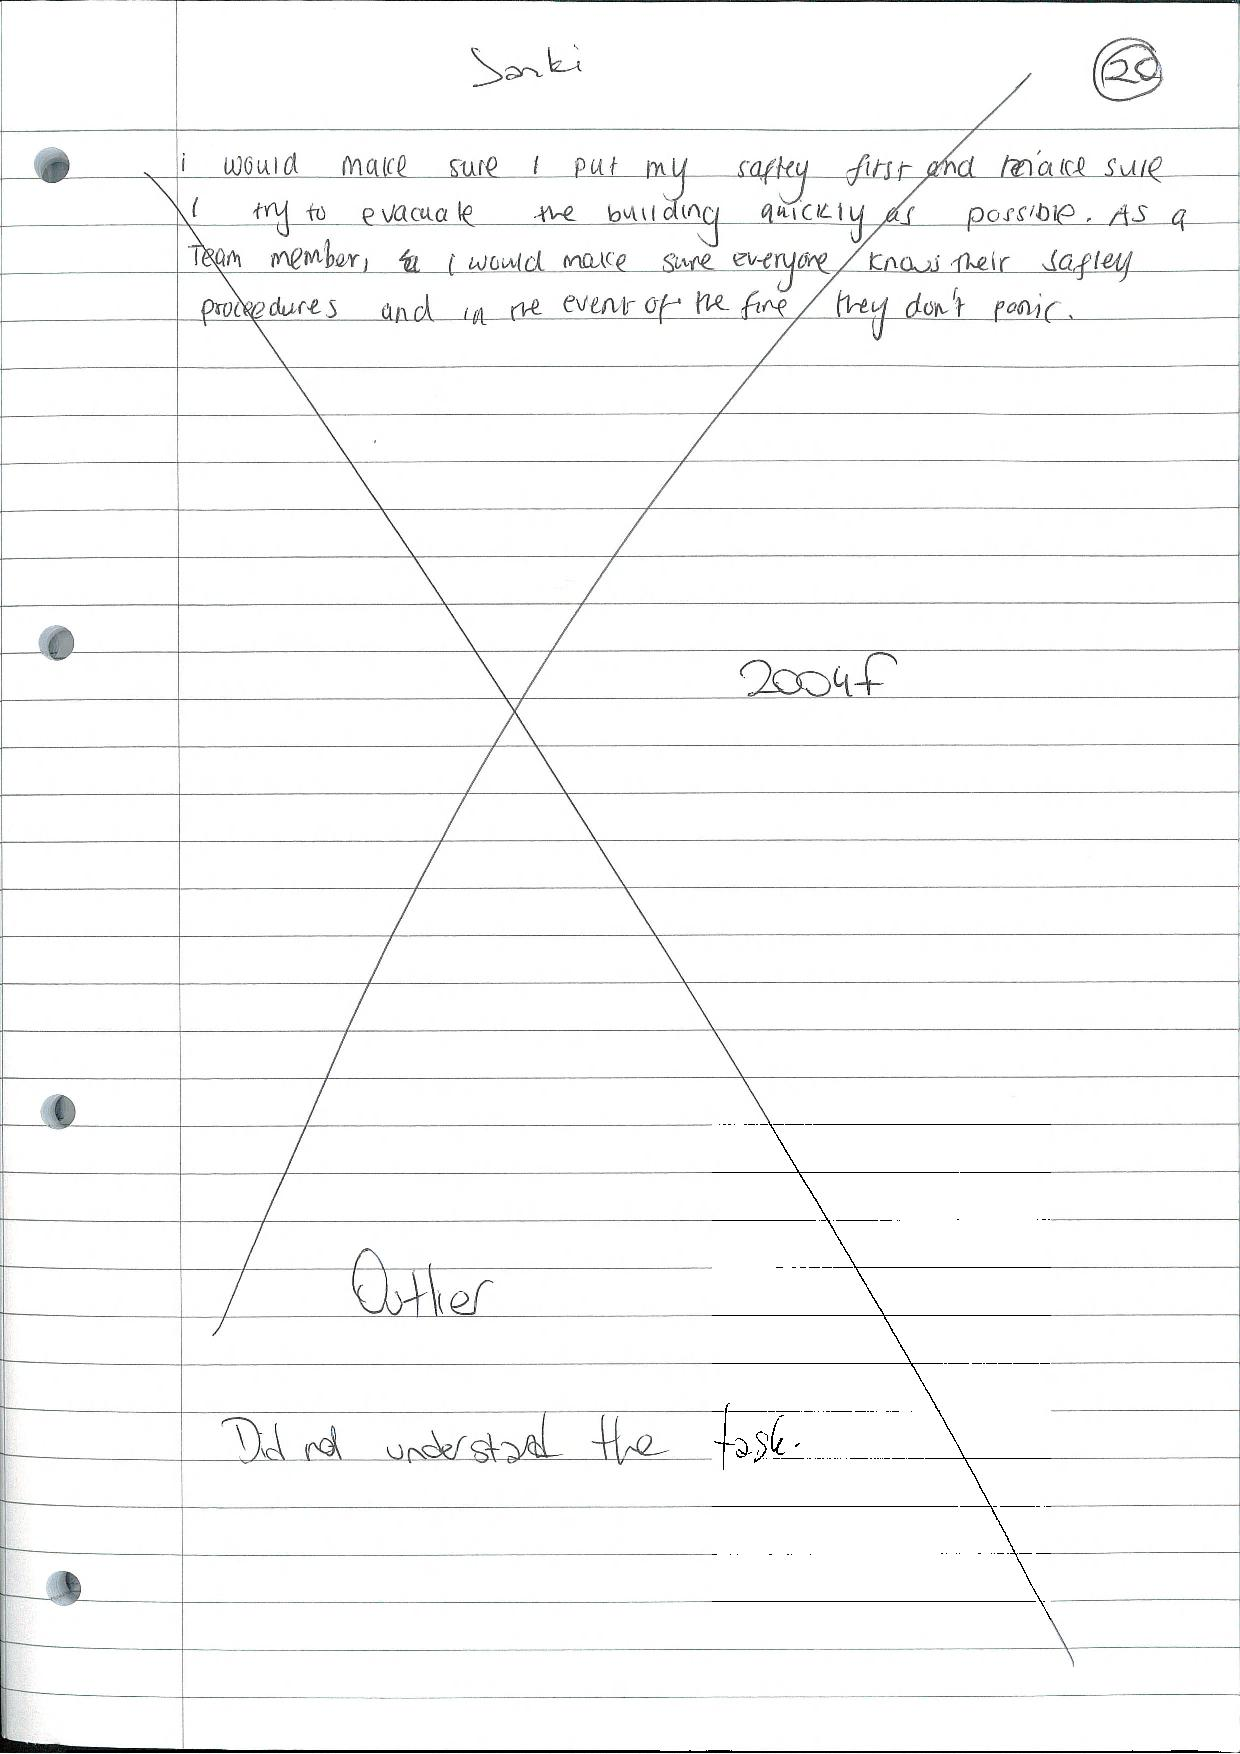 Sanki
20
i would make sure I put my saftey first and make sure
I try to evacuate the building quickly as possible. As a
Team member, I would make sure everyone knows their saftey
proceedures and in the event of the fire they don't panic.
2004f
Outlier
Did not understand the task.